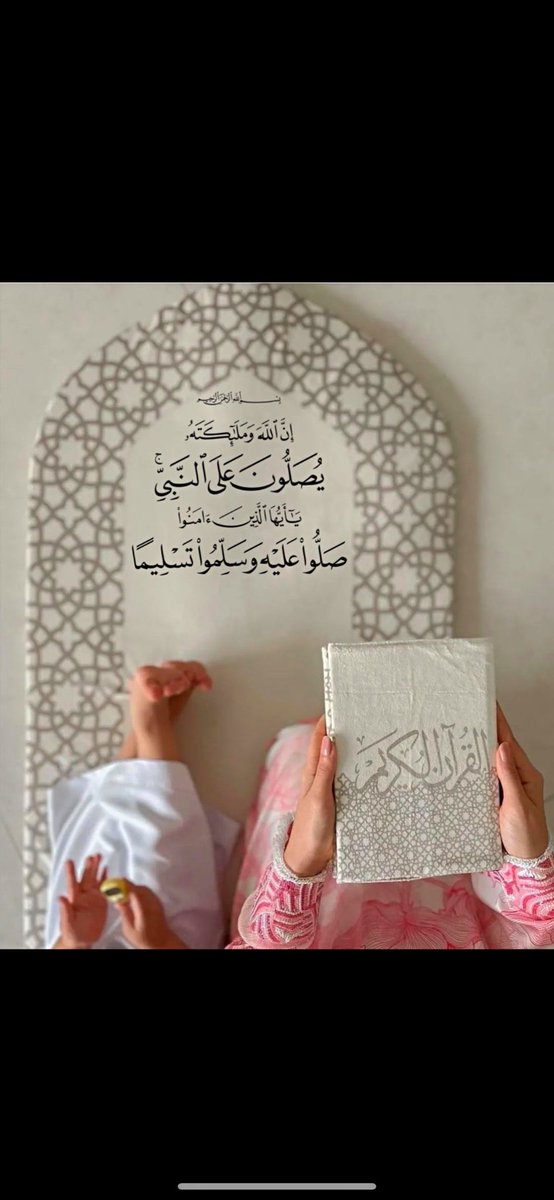 بسم الله الرحمن الرحيم
إِنَّ ٱللَّهَ وَمَلَـٰٓئِكَتَهُۥ
يُصَلُّونَ عَلَى ٱلنَّبِىِّ ۚ
يَـٰٓأَيُّهَا ٱلَّذِينَ ءَامَنُوا۟
صَلُّوا۟ عَلَيْهِ وَسَلِّمُوا۟ تَسْلِيمًا
القُرآن الكريم